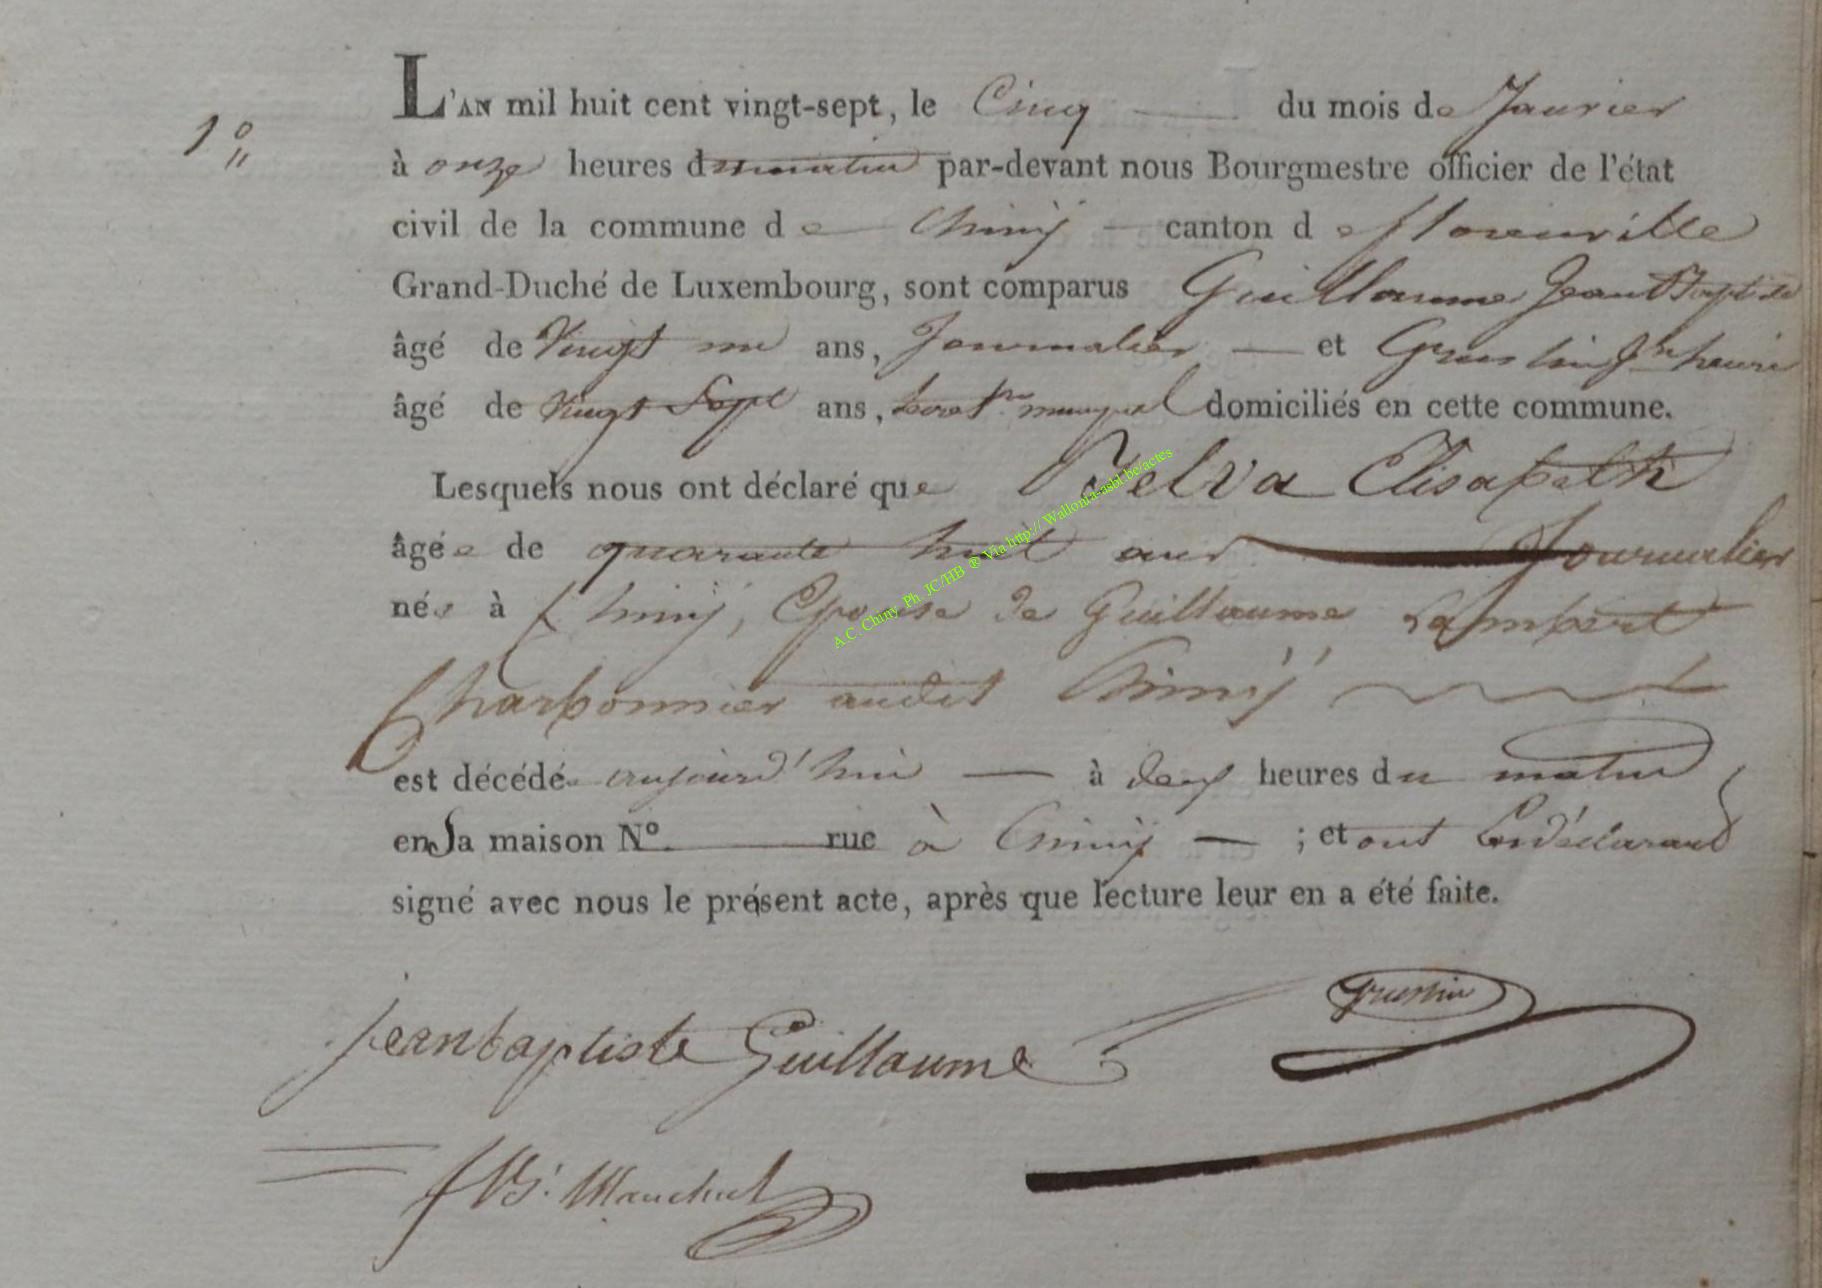 L'AN mil huit cent vingt-sept, le Cinq du mois de Janvier
1º
à onze heures du matin par-devant nous Bourgmestre officier de l'état
civil de la commune de Chiny canton de florenville
Grand-Duché de Luxembourg, sont comparus Guillaume Jean Baptiste
âgé de Vingt un ans, Journalier et Gruslin Jn henri
âgé de Vingt Sept ans, domiciliés en cette commune.
Lesquels nous ont déclaré que Pelva Elisabeth
âgée de quarante huit ans Journalier
née à Chiny, Epouse de Guillaume Lambert
Charbonnier audit Chiny
est décédée aujourd'hui à deux heures du matin
en Sa maison Nº rue à Chiny ; et ont les déclarants
signé avec nous le présent acte, après que lecture leur en a été faite.
Gruslin
jean baptiste Guillaume
A.C. Chiny Ph JC/HB ® Via http:// Wallonia-asbl.be/actes